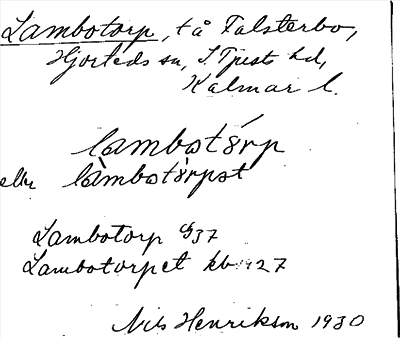 Lambotorp, t å Falsterbo,
Hjorteds sn, S. Tjusts hd,
Kalmar l.
lambotórp
eller làmbotòrpət
Lambotorp 37
Lambotorpet kb 1927
Nils Henrikson 1930